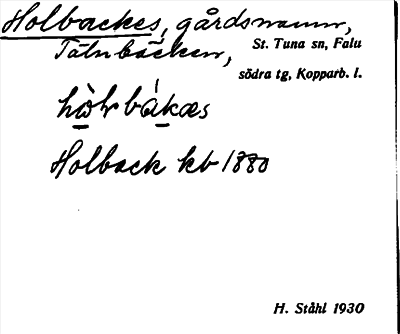 Holbackes, gårdsnamn,
Tätnbäcken, St. Tuna sn, Falu
södra tg, Kopparb. l.
hòlrbákæs
Holback kb 1880
H. Ståhl 1930